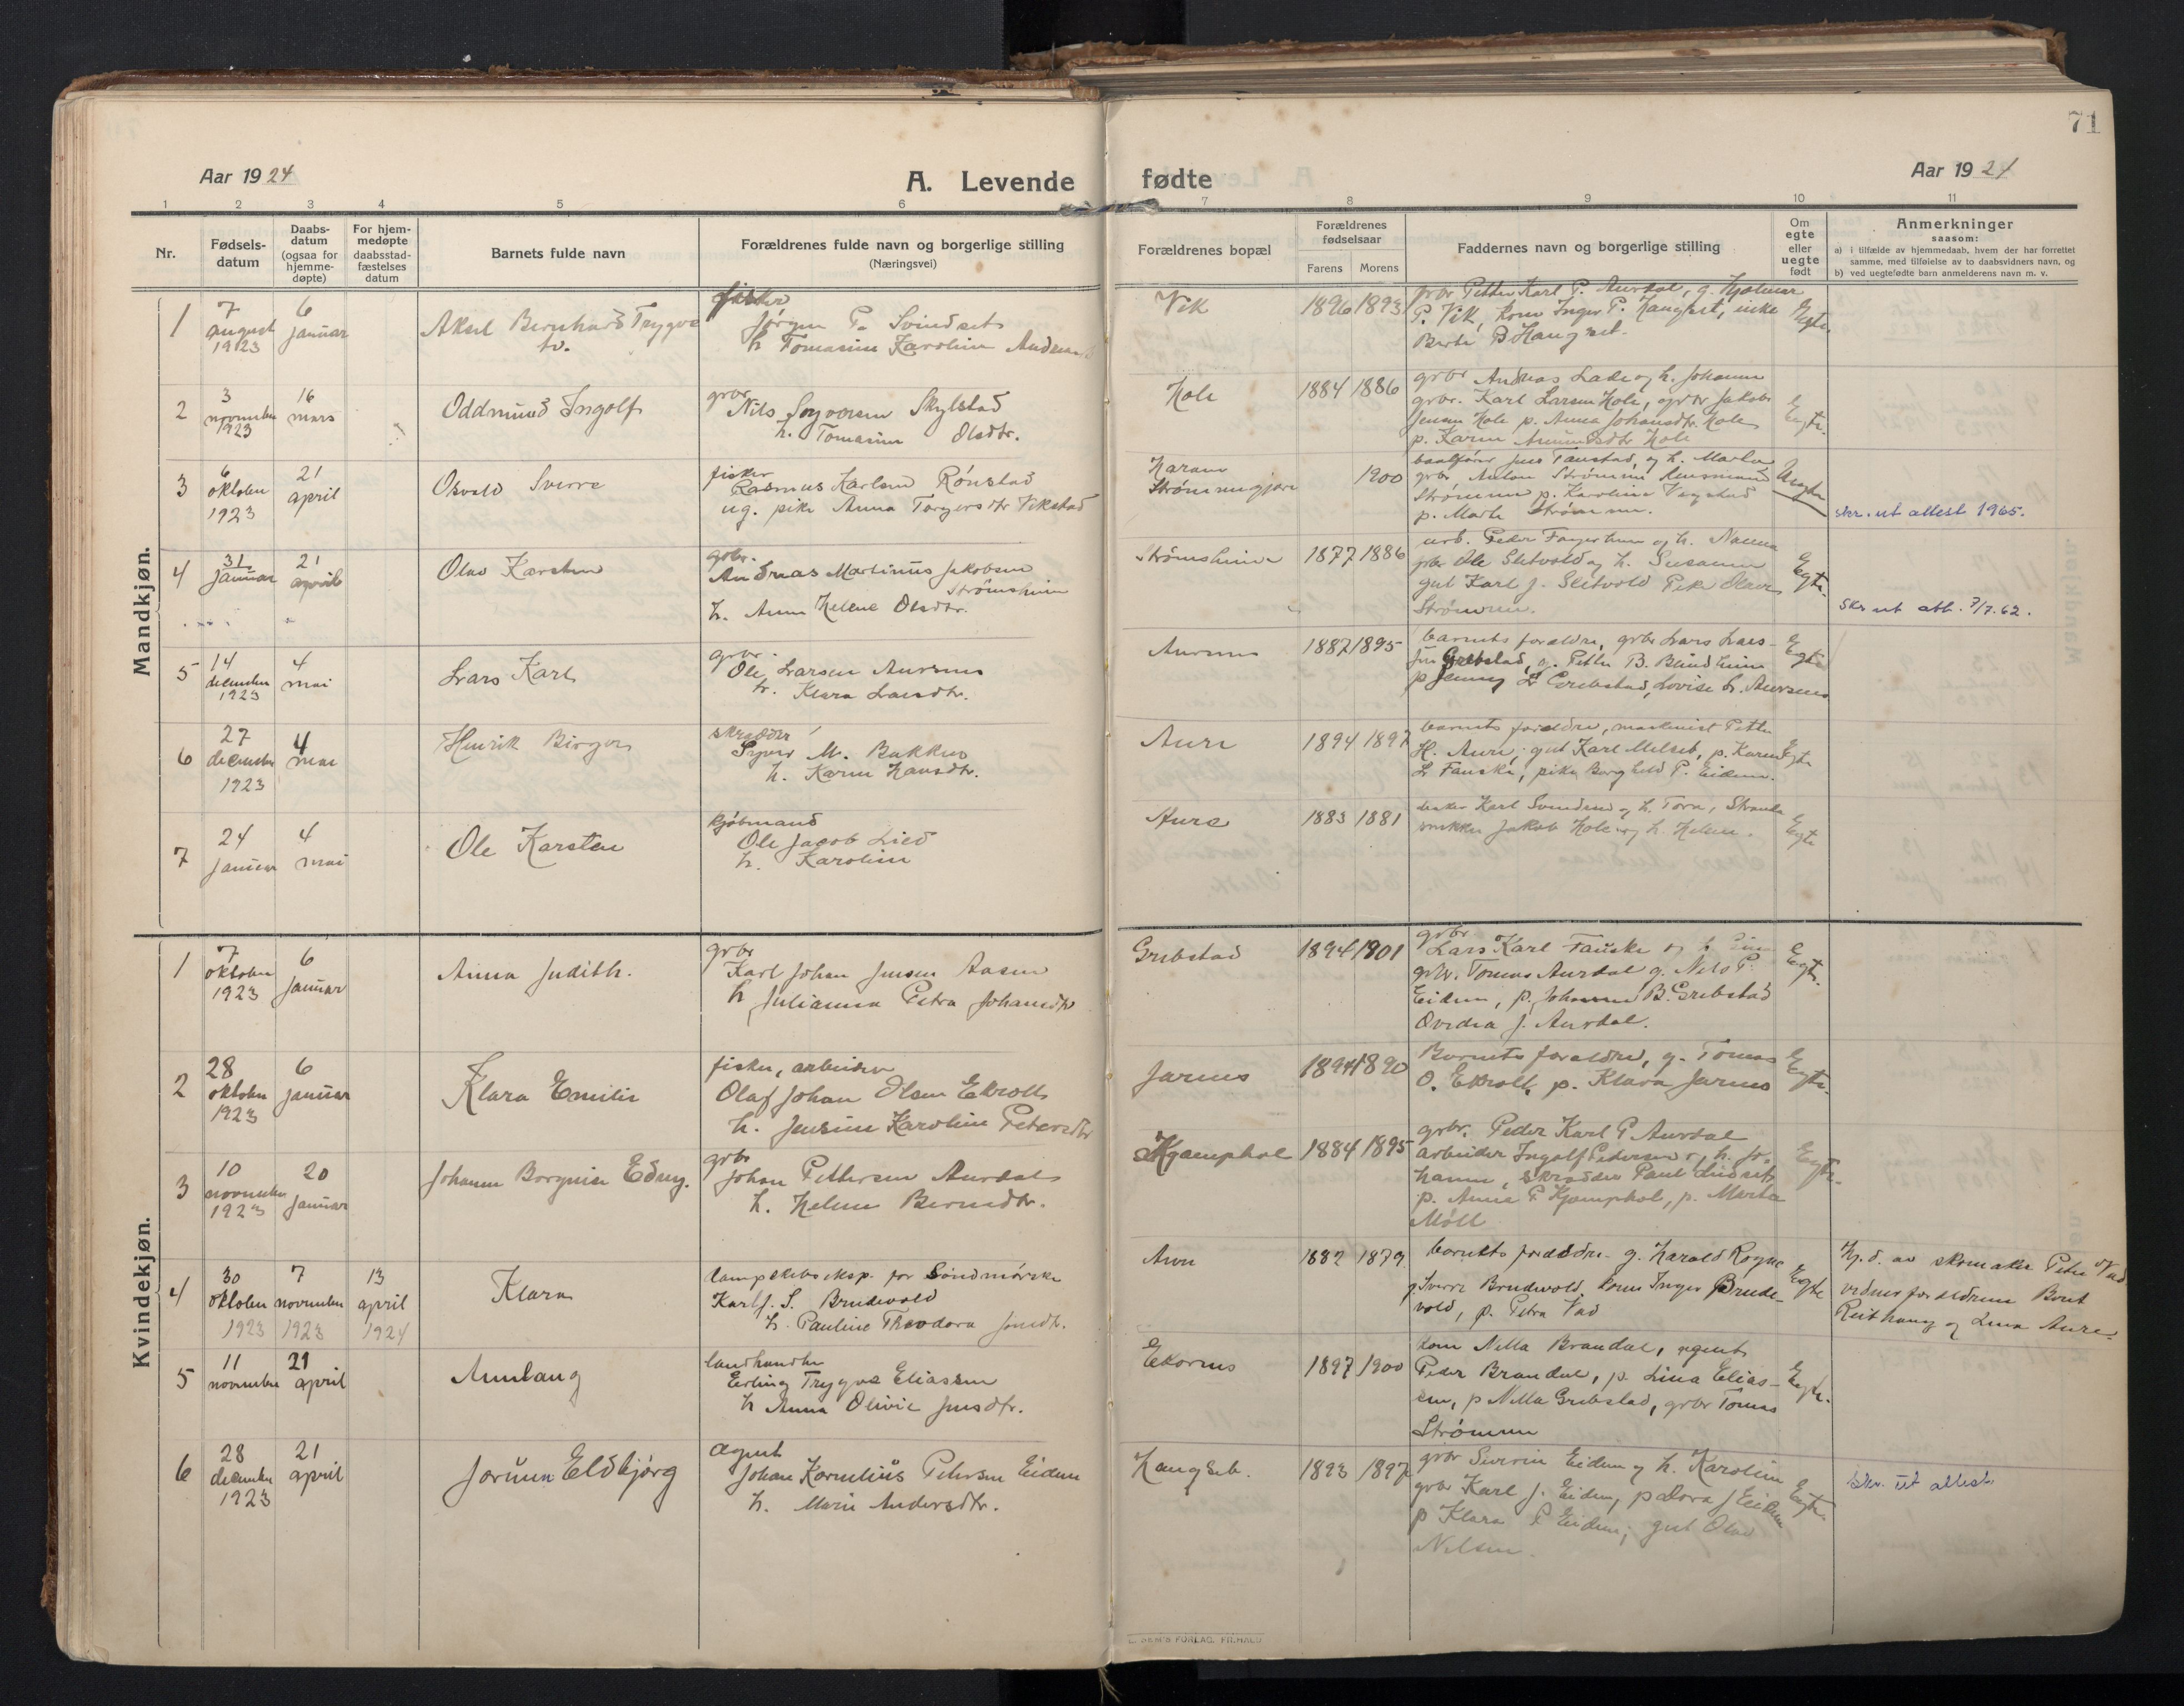 71
Aar 1924
A. Levende fødte
Aar 1924
1 2 3 4 5 6 7 8 9 10 11
Nr.
Fødsels-
datum
Daabs-
datum
(ogsaa for
hjemme-
døpte)
For hjem-
medøpte
daabsstad-
fæstelses
datum
Barnets fulde navn
Forældrenes fulde navn og borgerlige stilling
(Næringsvei)
Forældrenes bopæl
Forældrenes
fødselsaar
Farens Morens
Faddernes navn og borgerlige stilling
Om
egte
eller
uegte
født
Anmerkninger
saasom:
a) i tilfælde av hjemmedaab, hvem der har forrettet
samme, med tilføielse av to daabsvidners navn, og
b) ved uegtefødte barn anmelderens navn m. v.
Mandkjøn.
1
7 august 1923
6 januar
Aksel Bernhard Trygve
tv.
fisker
Jørgen P. Svindset
h. Tomasine Karoline
Vik
1896 1893
grbr Petter Karl P. Aurdal, g. Hjalmar
P. Vik, kone Inger P. Haugset, enke
Berte B Haugset.
Egte.
2
3 november 1923
16 mars
Oddmund Ingolf
grbr
Nils Syversen Skylstad
h. Tomasine Olsdtr.
Hole
1884 1886
grbr Andreas Lade og h. Johanne
grbr. Karl Larsen Hole, grbr Jakob
Jensen Hole p. Anna Johansdtr. Hole
p. Karen Amundsdtr Hole
Egte.
3
6 oktober 1923
21 april
Osvald Sverre
fisker
Rasmus Karlsen Rønstad
ug. pike Anna Torgersdtr Vikstad
Haram
1900
grbr. Anton Strømme
Strømme p. Karoline
p. Marte Strømme.
Uegte
skr. ut attest 1965.
4
31 januar
21 april
Olav Karsten
grbr.
Andreas Martinus Jakobsen
Strømsheim
h. Anne Helene Olsdtr.
Strømsheim
1877 1886
arb. Peder Fagerheim og h. Nanna
grbr Ole Sletvold og h. Susanne
gut Karl J. Sletvold Pike Olave
Strømme.
Egte.
Skr ut att. 7/7.62.
5
14 december 1923
4 mai
Lars Karl
grbr.
Ole Larsen Aursnes
h. Klara Larsdtr.
Aursnes
1887 1895
barnets forældre, grbr Lars Lars-
sen Grebstad, g. Petter B. Blindheim
p Jenny L Grebstad, Lovise L. Aursnes
Egte
6
27 december 1923
4 mai
Henrik Birger
skrædder
Syver M. Bakken
h. Karen Hansdtr.
Aure
1894 1897
barnets forældre, maskinist Petter
H. Aure, gut Karl Melset, p. Karen
L Fauske, pike Borghild P. Eidem.
Egte
7
24 januar
4 mai
Ole Karsten
kjøbmand
Ole Jacob Lied
h. Karoline
Aure
1883 1881
Karl Svendsen og h. Tora, Stranda
Jakob Hole og h. Helene.
Egte
Kvindekjøn.
1
7 oktober 1923
6 januar
Anna Judith.
grbr
Karl Johan Jensen Aasen
h Julianna Petra Johansdtr
Grebstad
1894 1901
grbr
Lars Karl Fauske og h.
grbr. Tomas Aurdal g. Nils P.
Eidem, p. Johanne B. Grebstad
Ovidia J. Aurdal.
Egte.
2
28 oktober 1923
6 januar
Klara Emilie
fisker, arbeider
Olaf Johan Olsen Ekroll
h. Jensine Karoline Petersdtr
Jarnes
1894 1890
Barnets forældre, g. Tomas
O. Ekroll, p. Klara Jarnes
Egte.
3
10 november 1923
20 januar
Johanne Borgnise Edny.
grbr
Johan Pettersen Aurdal
h. Helene Berntsdtr.
Kjæmphol
1884 1895
grbr. Peder Karl P Aurdal
arbeider Ingolf Pedersen og h. Jo-
hanne, skrædder Paul Lindset
p. Anna P Kjæmphol, p. Marta
Møll
Egte.
4
30 oktober 1923
7 november 1923
13 april 1924
Klara
dampskibseksp. for Søndmørske
Karl J. S. Brudevold
h. Pauline Theodora Jonsdtr.
Aure
1882 1879.
barnets forældre g. Harald Rogne
g. Sverre Brudevold, kone Inger Brude-
vold, p. Petra Vad
Egte
Hj.d. av skomaker Peter Vad
vidner forældrene Bernt
Reithaug og Lina Aure.
5
11 november
21 april
Annlaug
landhandler
Erling Trygve Eliassen
h Anna Olivie Jensdtr.
Ekornes
1897 1900
kone Nella Brandal, agent
Peder Brandal, p. Lina Elias-
sen, p Nella Grebstad, grbr Tomas
Strømme
Egte.
6
28 december 1923
21 april
Jorunn Eldbjørg
agent
Johan Kornelius Petersen Eidem
h. Marie Andersdtr.
Haugset.
1893 1897
grbr Severin Eidem og h. Karoline
grbr Karl J. Eidem, p Dora J Eidem
p Klara P Eidem, gut Olav
Nilsen.
Egte.
Skr. ut attest
E. SEM'S FORLAG. FR.HALD